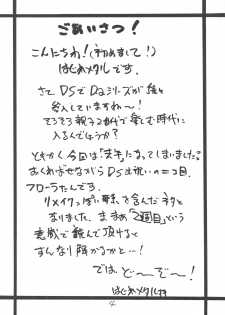 ごあいさつ!
こんにちわ!(初めまして!)
はじめメタルです。
さて DSでDQシリーズが続々
参入していますねー!
そろそろ親子2代で楽しむ時代に
入るんでしょうか?
ともかく今回は「支午」になってしまいました。
おくればせながらDS出祝いの=コ回
フローラたんです。
リメイクっぽい要素を含んだネタと
なりました。ま、まぁ「2週目」という
意識で読んで頂けると
すんなり降がるかと…!
では ど〜ぞ〜!
はじめメタル
4